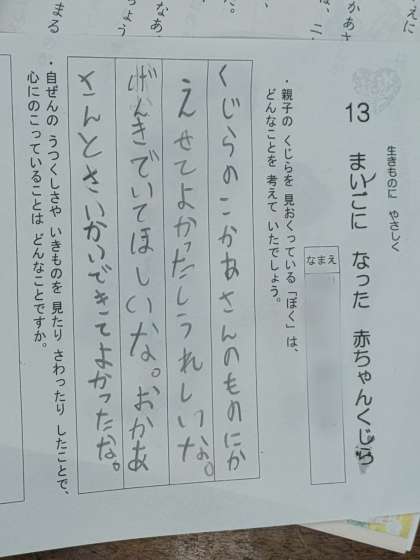 生きものに やさしく
13 まいごに なった 赤ちゃんくじら
なまえ
・親子の くじらを 見おくっている「ぼく」は、
どんなことを 考えて いたでしょう。
くじらのこかあさんのものにか
えせてよかったしうれしいな。
げんきでいてほしいな。おかあ
さんとさいかいできてよかったな。
・自ぜんの うつくしさや いきものを 見たり さわったり したことで、
心にのこっていることは どんなことですか。